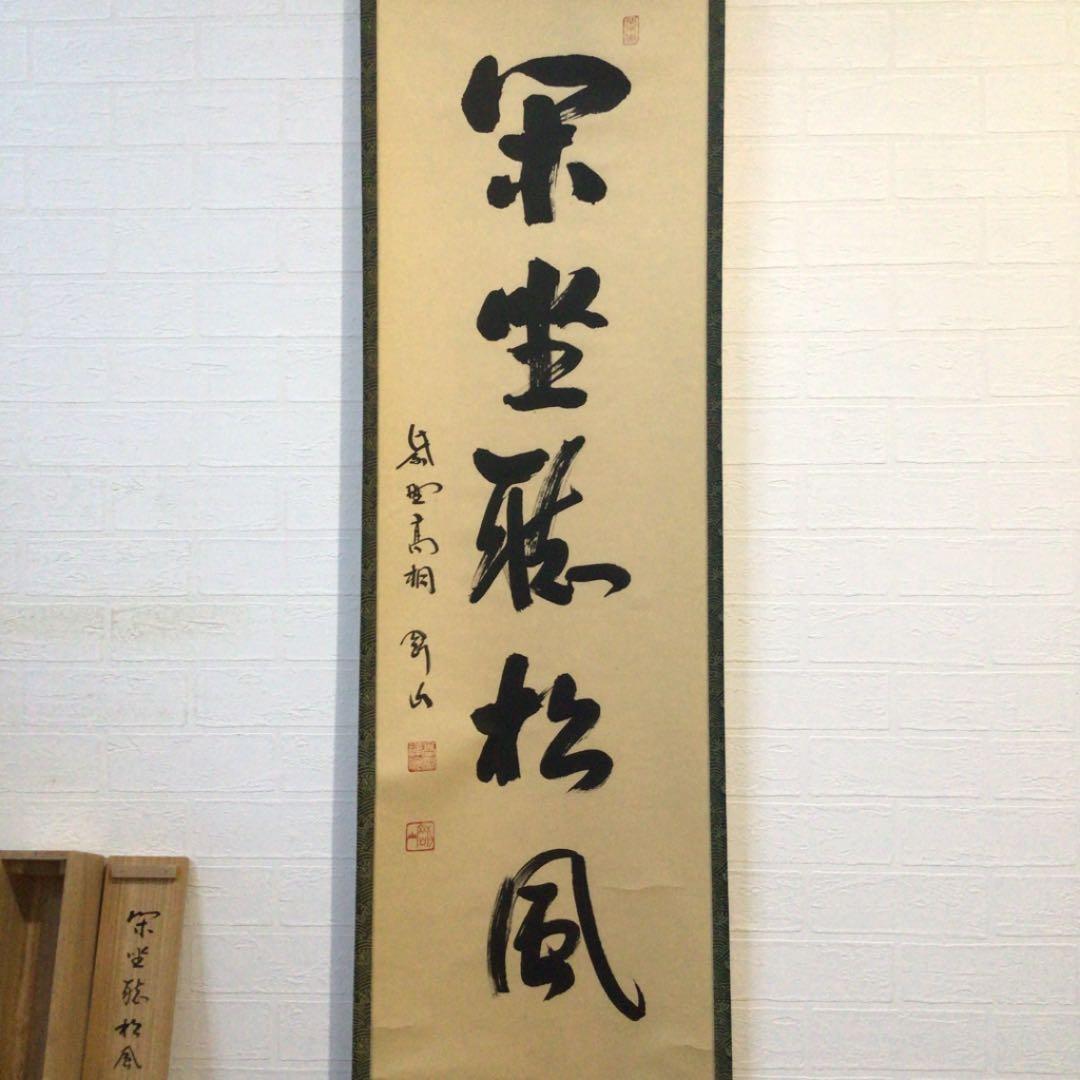 閑坐聴松風
紫野高桐 剛山
閑坐聴松風